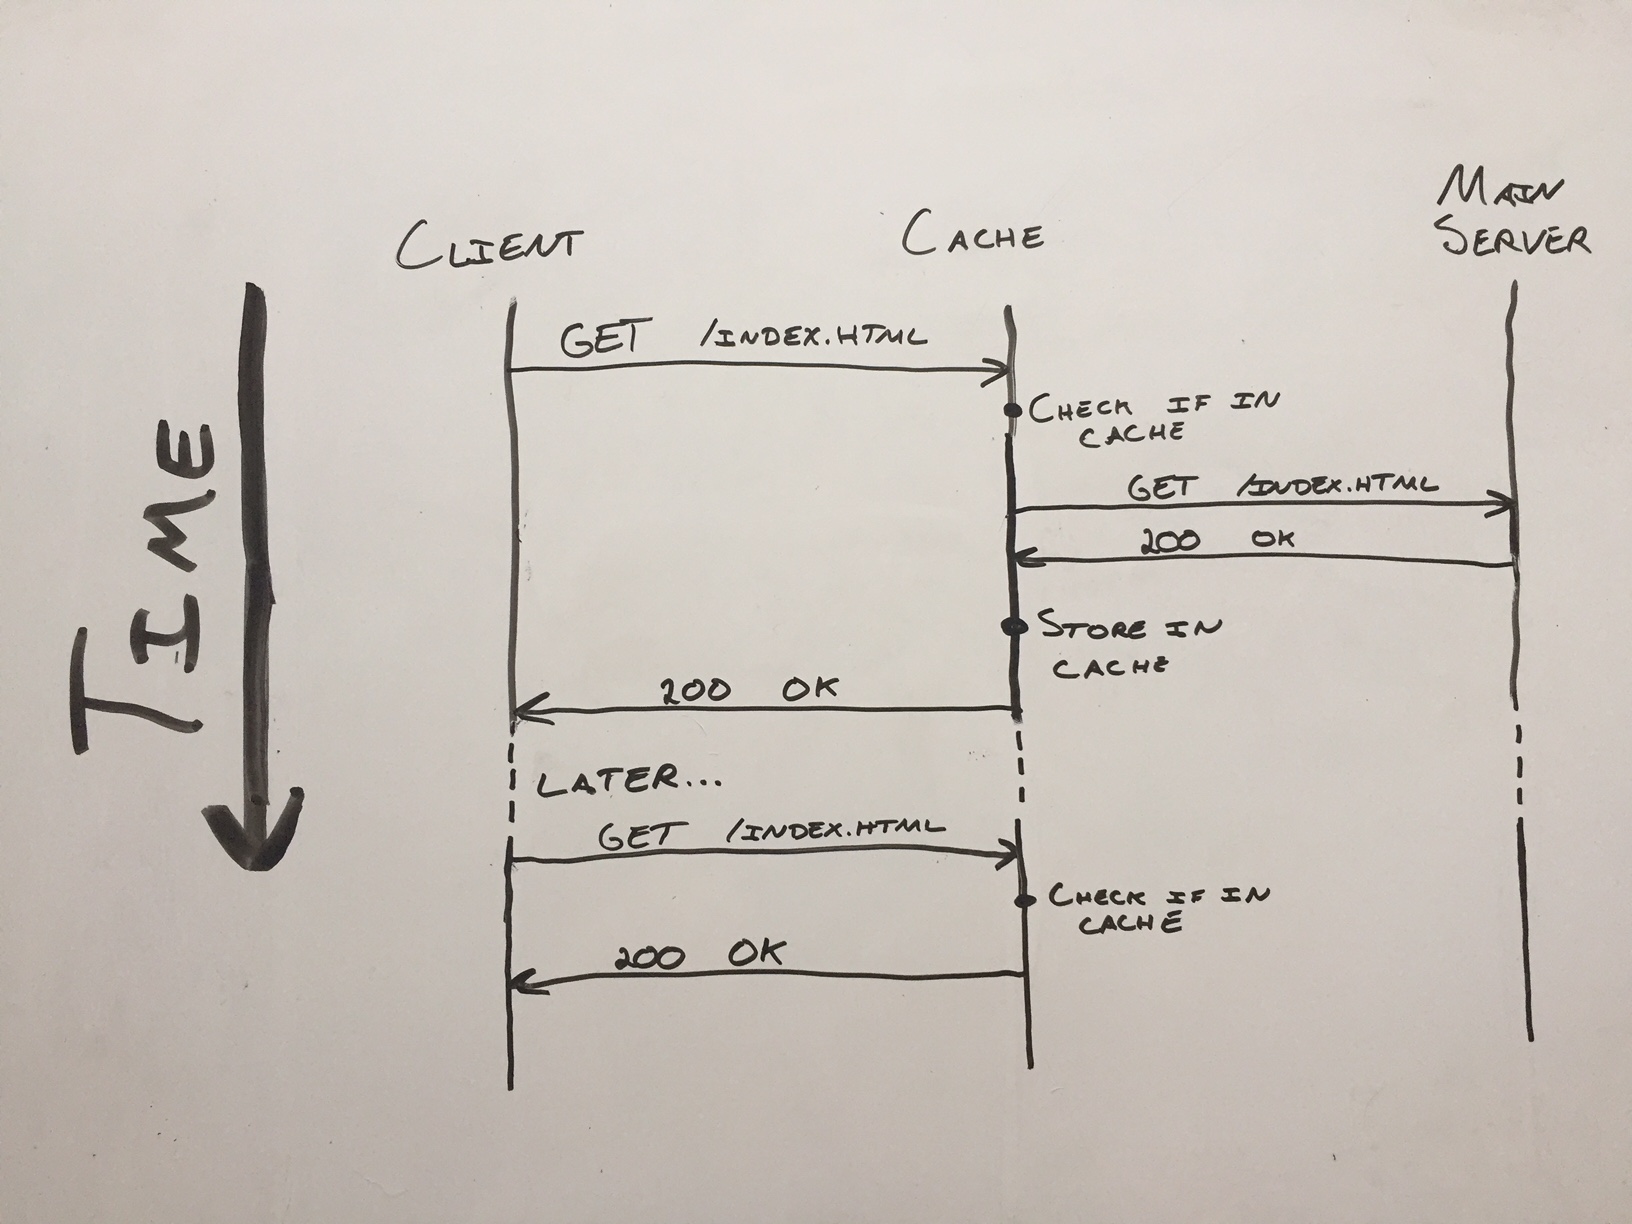 MAIN
SERVER
CLIENT
CACHE
TIME
GET /INDEX.HTML
CHECK IF IN
CACHE
GET /INDEX.HTML
200 OK
STORE IN
CACHE
200 OK
LATER...
GET /INDEX.HTML
CHECK IF IN
CACHE
200 OK